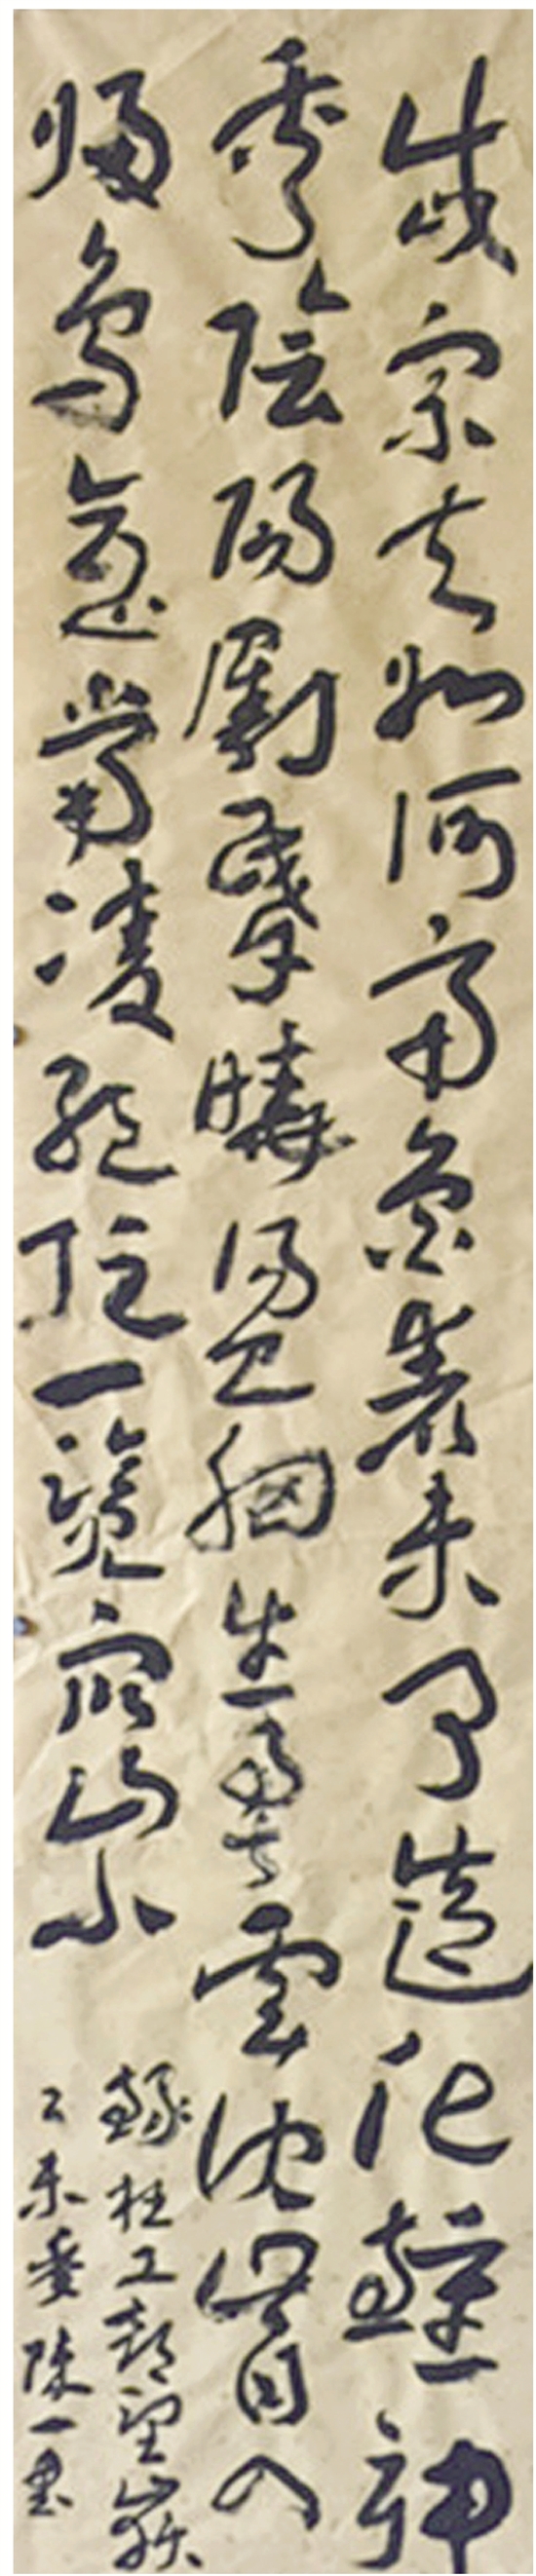 岱宗夫如何齊魯青未了造化鍾神
秀陰陽割昏曉盪胸生曾雲決眥入
歸鳥會當凌絕頂一覽眾山小
錄杜工部望嶽
乙未夏陳一墨